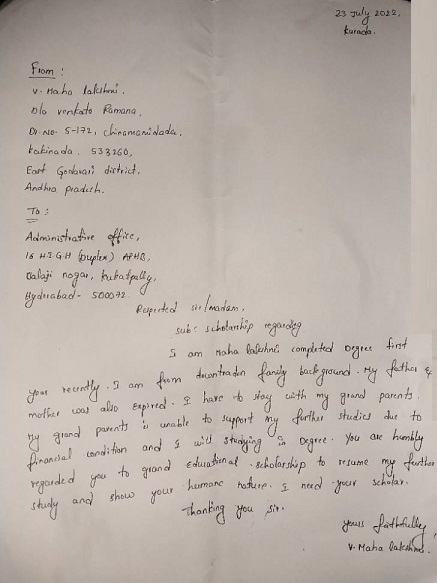 23 July 2022,
kurada.
From :
V. Maha lakshmi.
D/o venkata Ramana,
Dr. No- 5-172, chinamanidada,
kakinada. 533260,
East Godavari district,
Andhra pradesh.
To :
Administrative office,
16 H.I.G.H (Duplex) APHB,
Balaji nagar, kukatpally,
Hyderabad - 500072.
Respected sir/madam,
sub: scholarship regarding
I am Maha lakshmi completed Degree first
year recently. I am from downtraden family background. My father &
mother was also expired. I have to stay with my grand parents.
My grand parents is unable to support my further studies due to
financial condition and I will studying in Degree. You are humbly
regarded you to grand educational scholarship to resume my further
study and show your humane nature. I need your scholar.
Thanking you sir.
yours faithfully,
V. Maha lakshmi.